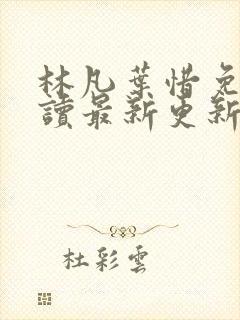 林凡葉惜免
讀最新更新
杜彩雲